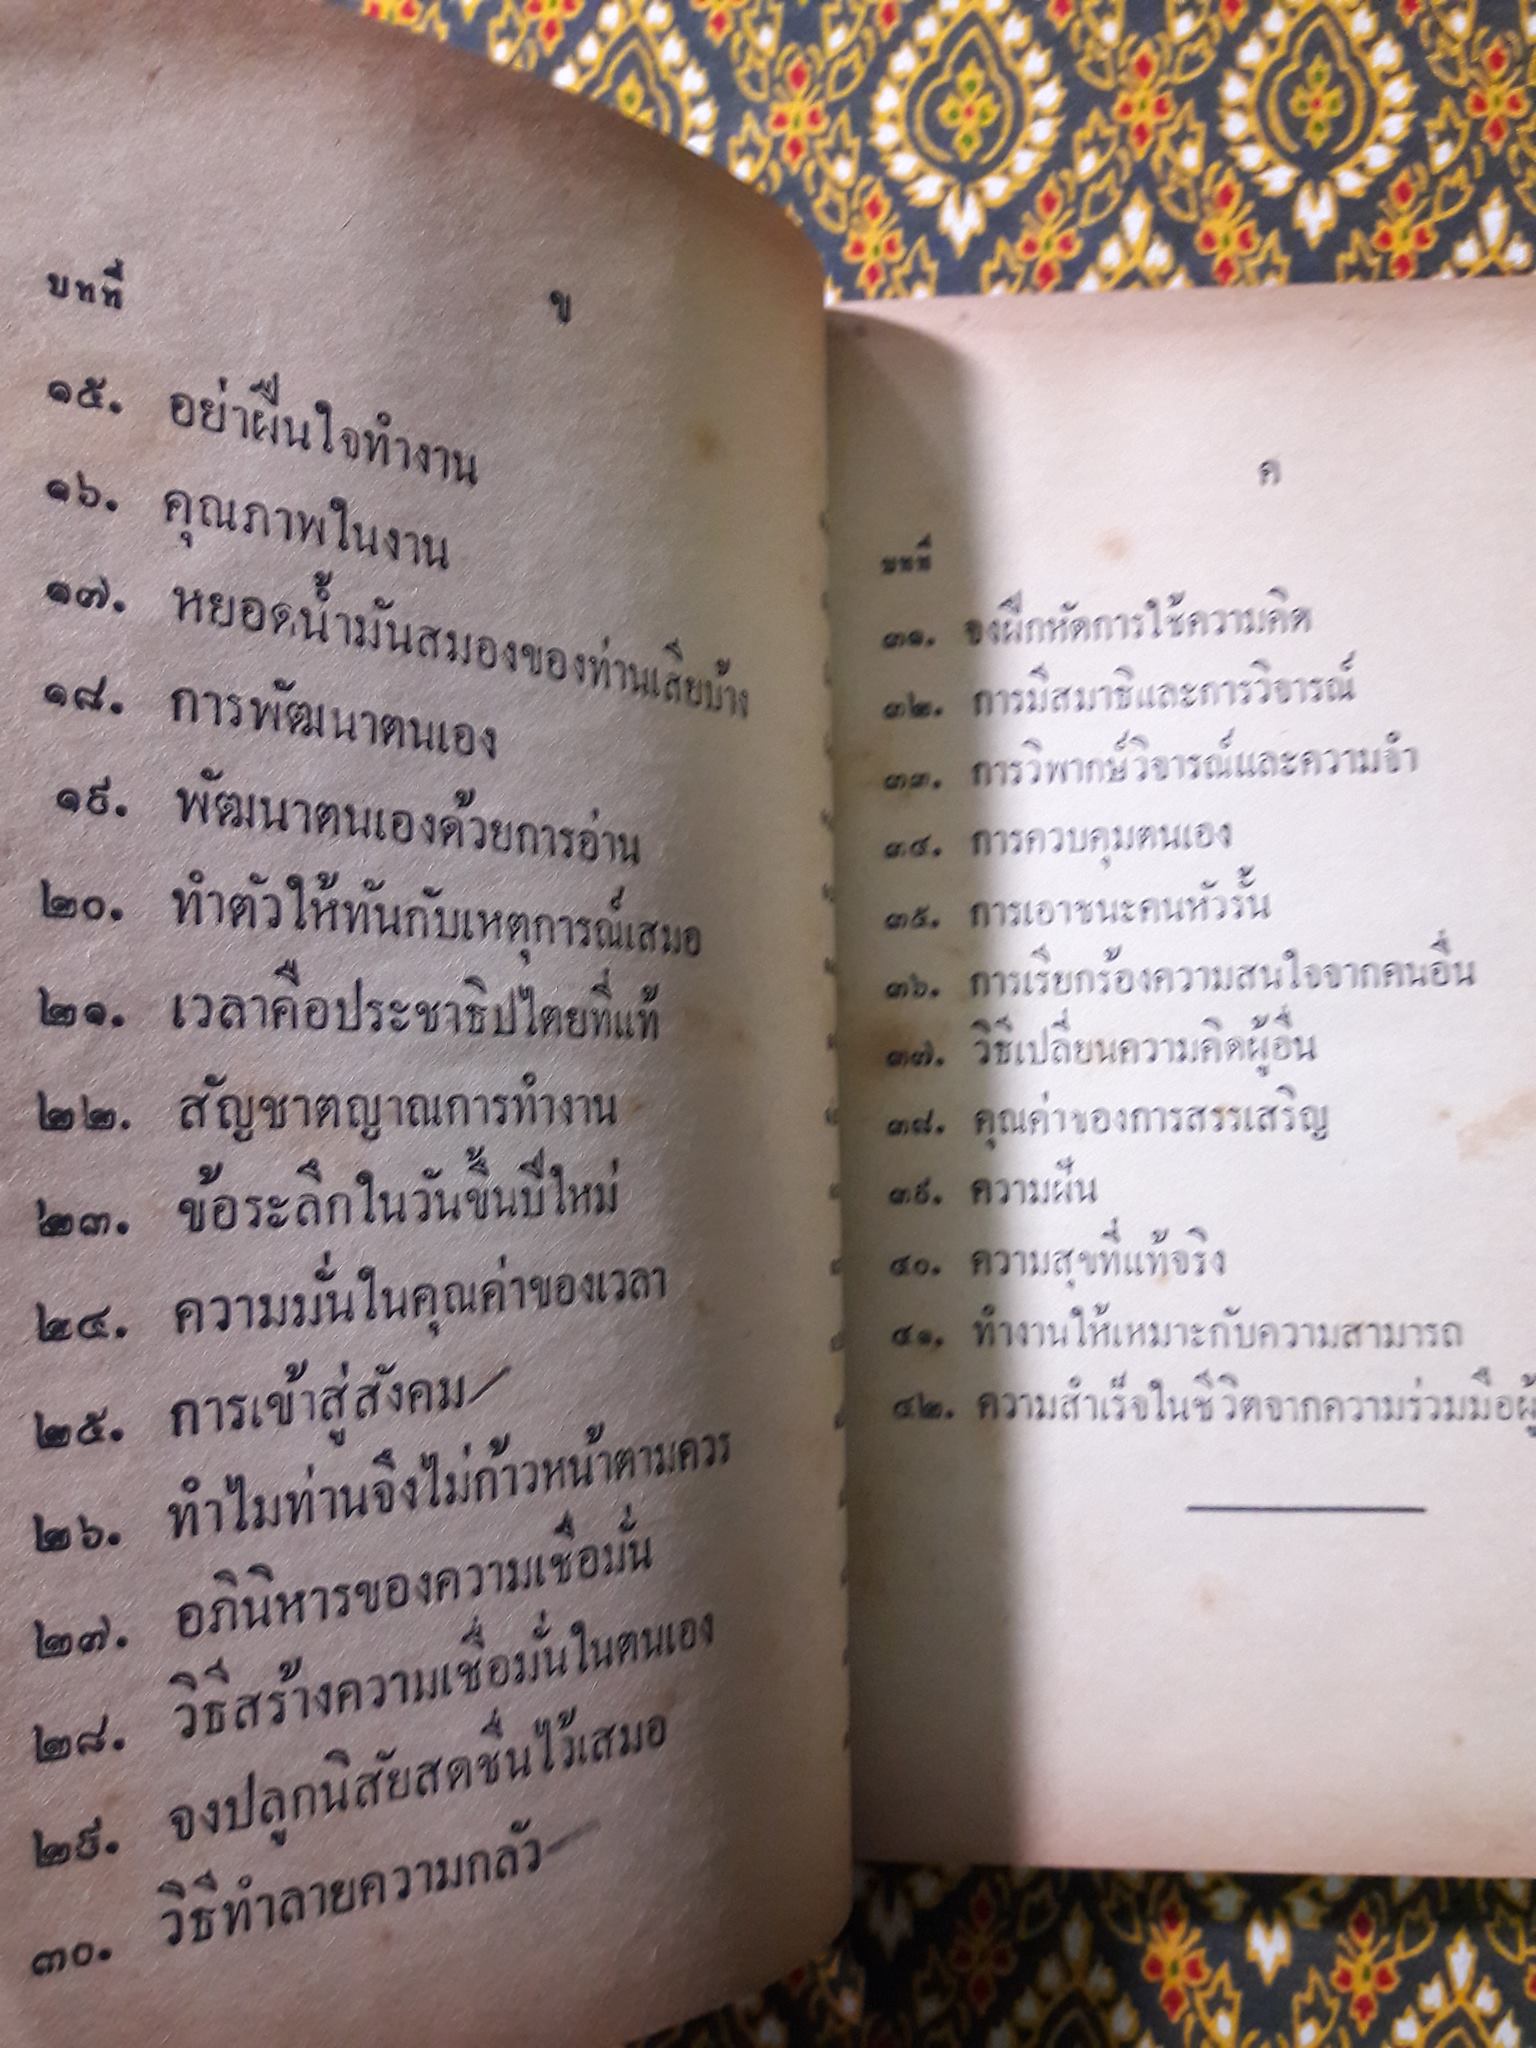 ข
บทที่
๑๕. อย่าฝืนใจทำงาน
๑๖. คุณภาพในงาน
๑๗. หยอดน้ำมันสมองของท่านเสียบ้าง
๑๘. การพัฒนาตนเอง
๑๙. พัฒนาตนเองด้วยการอ่าน
๒๐. ทำตัวให้ทันกับเหตุการณ์เสมอ
๒๑. เวลาคือประชาธิปไตยที่แท้
๒๒. สัญชาตญาณการทำงาน
๒๓. ข้อระลึกในวันขึ้นปีใหม่
๒๔. ความมั่นในคุณค่าของเวลา
๒๕. การเข้าสู่สังคม
๒๖. ทำไมท่านจึงไม่ก้าวหน้าตามควร
๒๗. อภินิหารของความเชื่อมั่น
๒๘. วิธีสร้างความเชื่อมั่นในตนเอง
๒๙. จงปลูกนิสัยสดชื่นไว้เสมอ
๓๐. วิธีทำลายความกลัว
ค
บทที่
๓๑. จงฝึกหัดการใช้ความคิด
๓๒. การมีสมาธิและการวิจารณ์
๓๓. การวิพากษ์วิจารณ์และความจำ
๓๔. การควบคุมตนเอง
๓๕. การเอาชนะคนหัวรั้น
๓๖. การเรียกร้องความสนใจจากคนอื่น
๓๗. วิธีเปลี่ยนความคิดผู้อื่น
๓๘. คุณค่าของการสรรเสริญ
๓๙. ความฝัน
๔๐. ความสุขที่แท้จริง
๔๑. ทำงานให้เหมาะกับความสามารถ
๔๒. ความสำเร็จในชีวิตจากความร่วมมือผู้